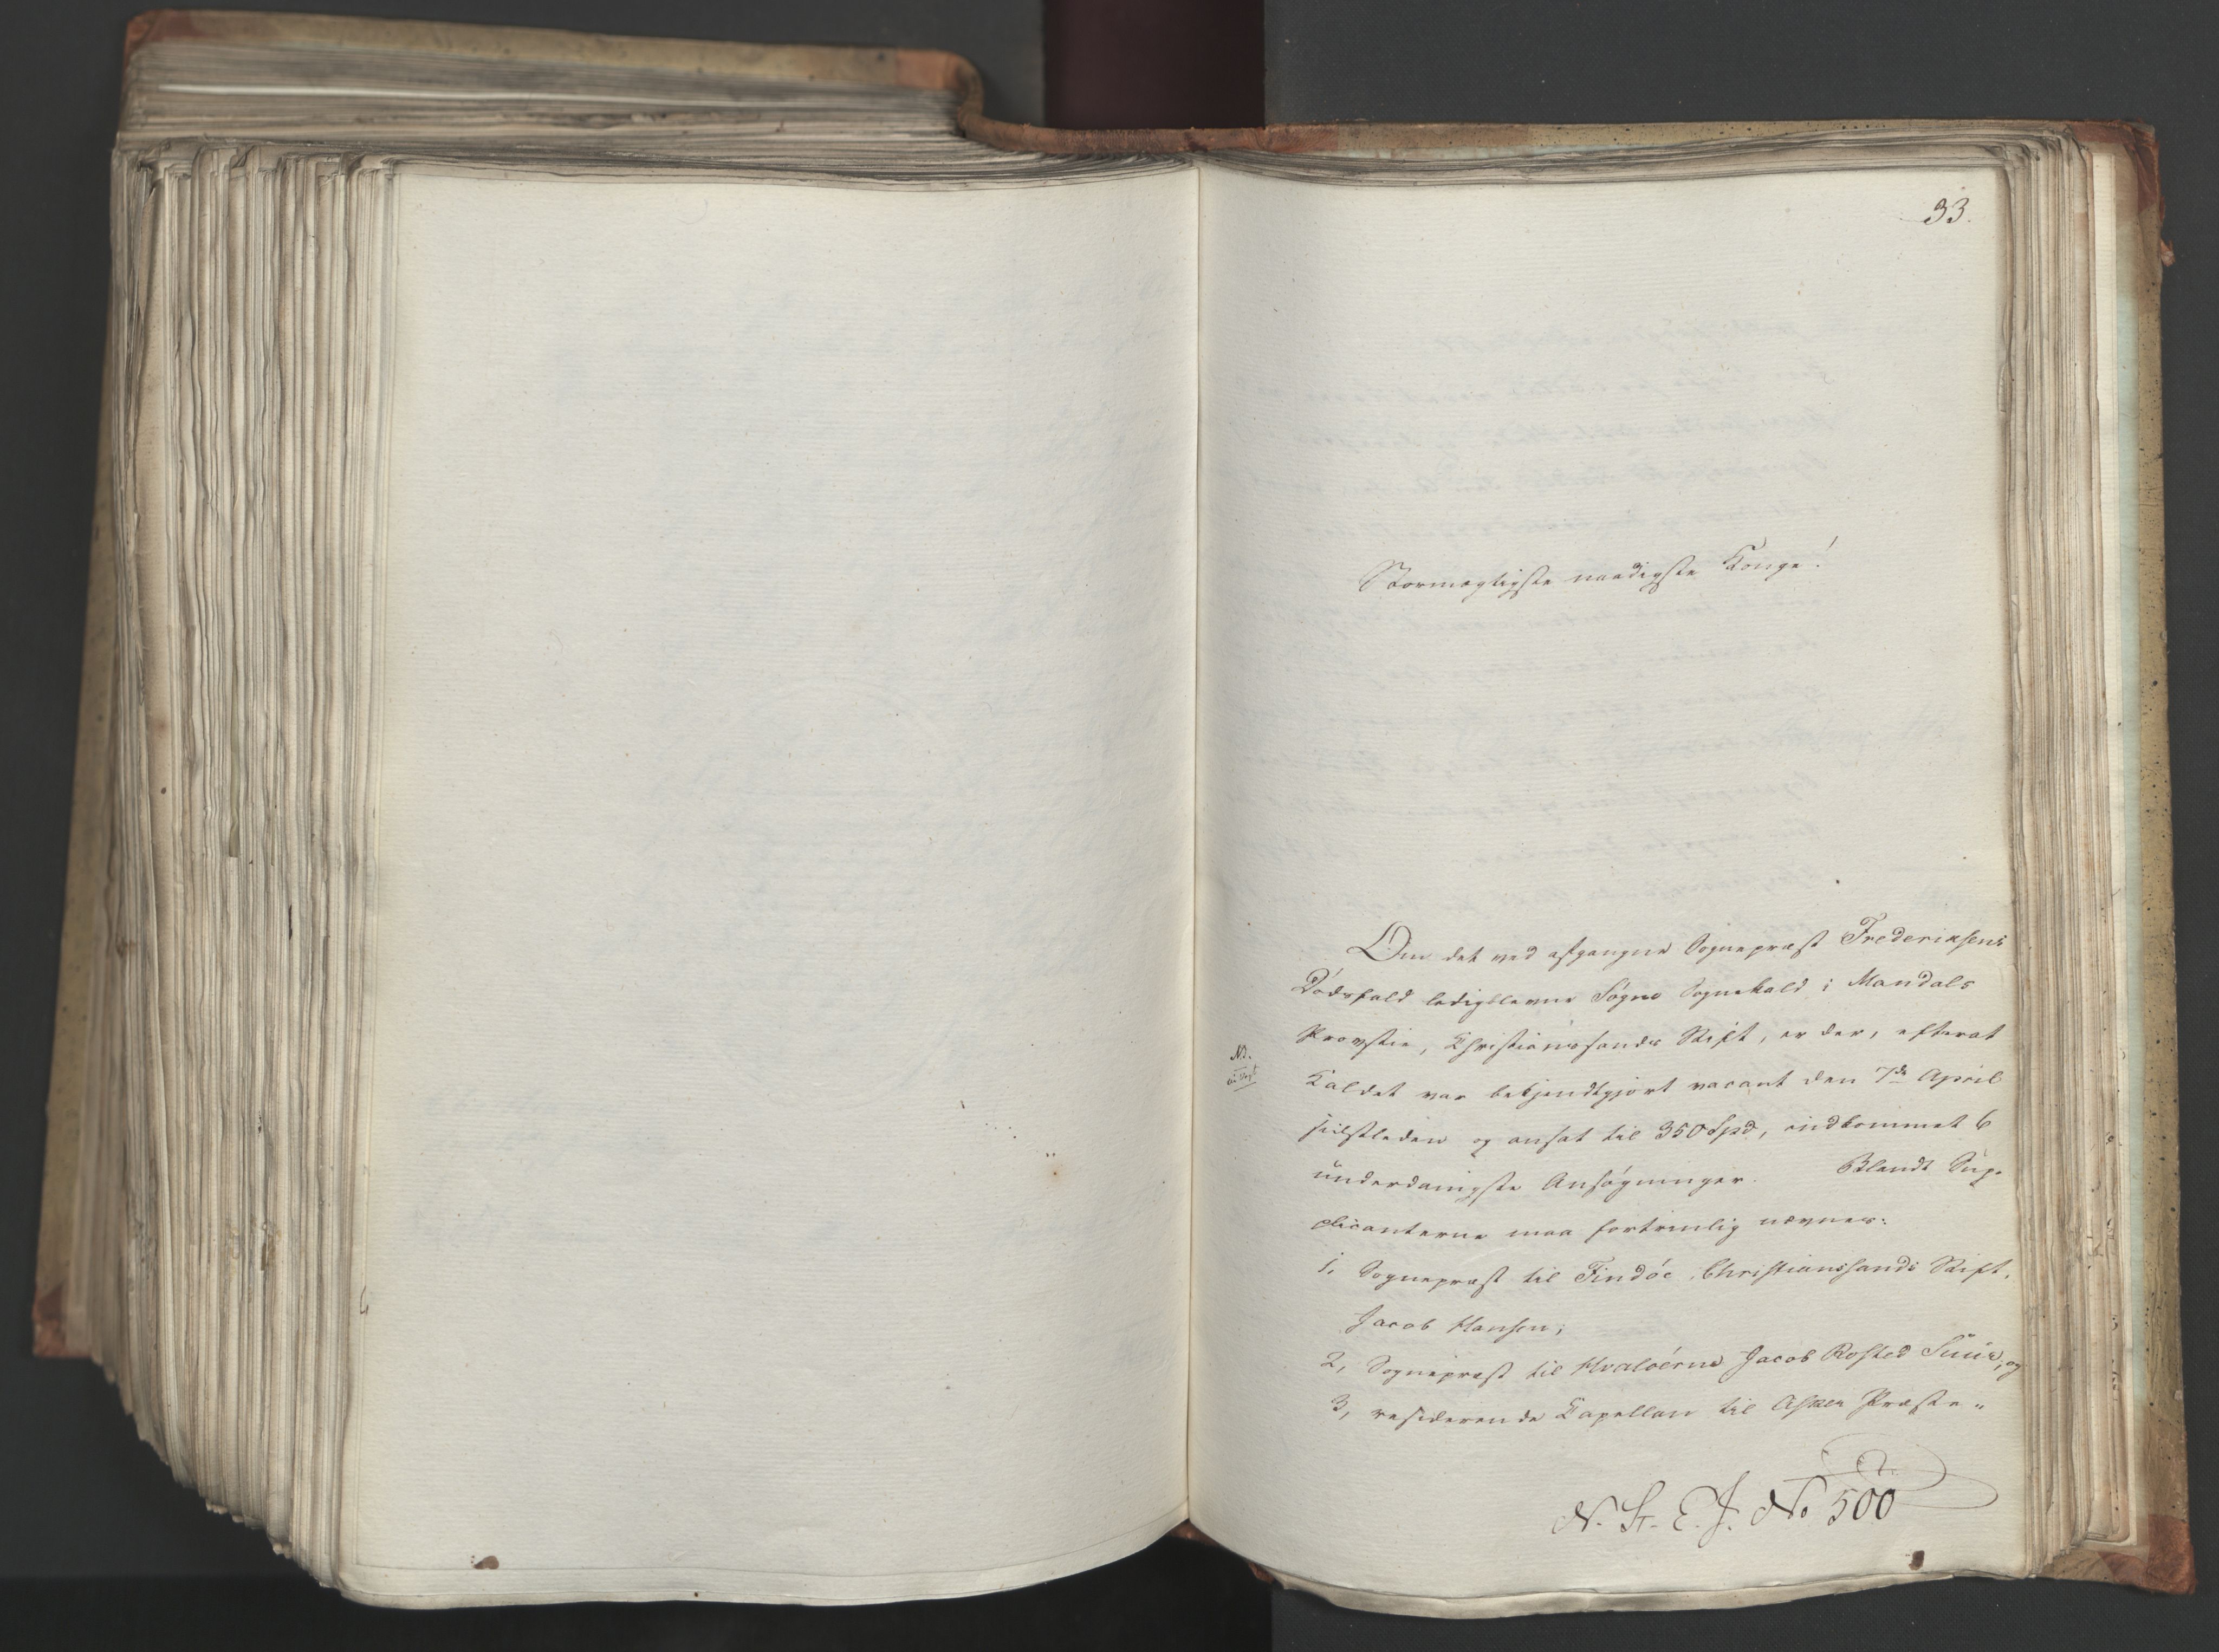 33.
Stormægtigste naadigste Konge!
Om det ved afgangne Sognepræst Frederiksens
Dødsfald ledigblevne Søgne Sognekald i Mandals
Provstie, Christianssands Stift, er der, efterat
Kaldet var bekjendtgjort vacant den 7de April
sidstleden og ansat til 350 Spd, indkommet 6
underdanigste Ansøgninger. Blandt Sup-
plicanterne maa fortrinlig nævnes:
1, Sognepræst til Findöe, Christianssands Stift,
Jacob Hansen;
2, Sognepræst til Hvalöerne Jacob Rosted Suur, og
3, residerende Capellan til Asker Præste-
N. St. E. J. No 500